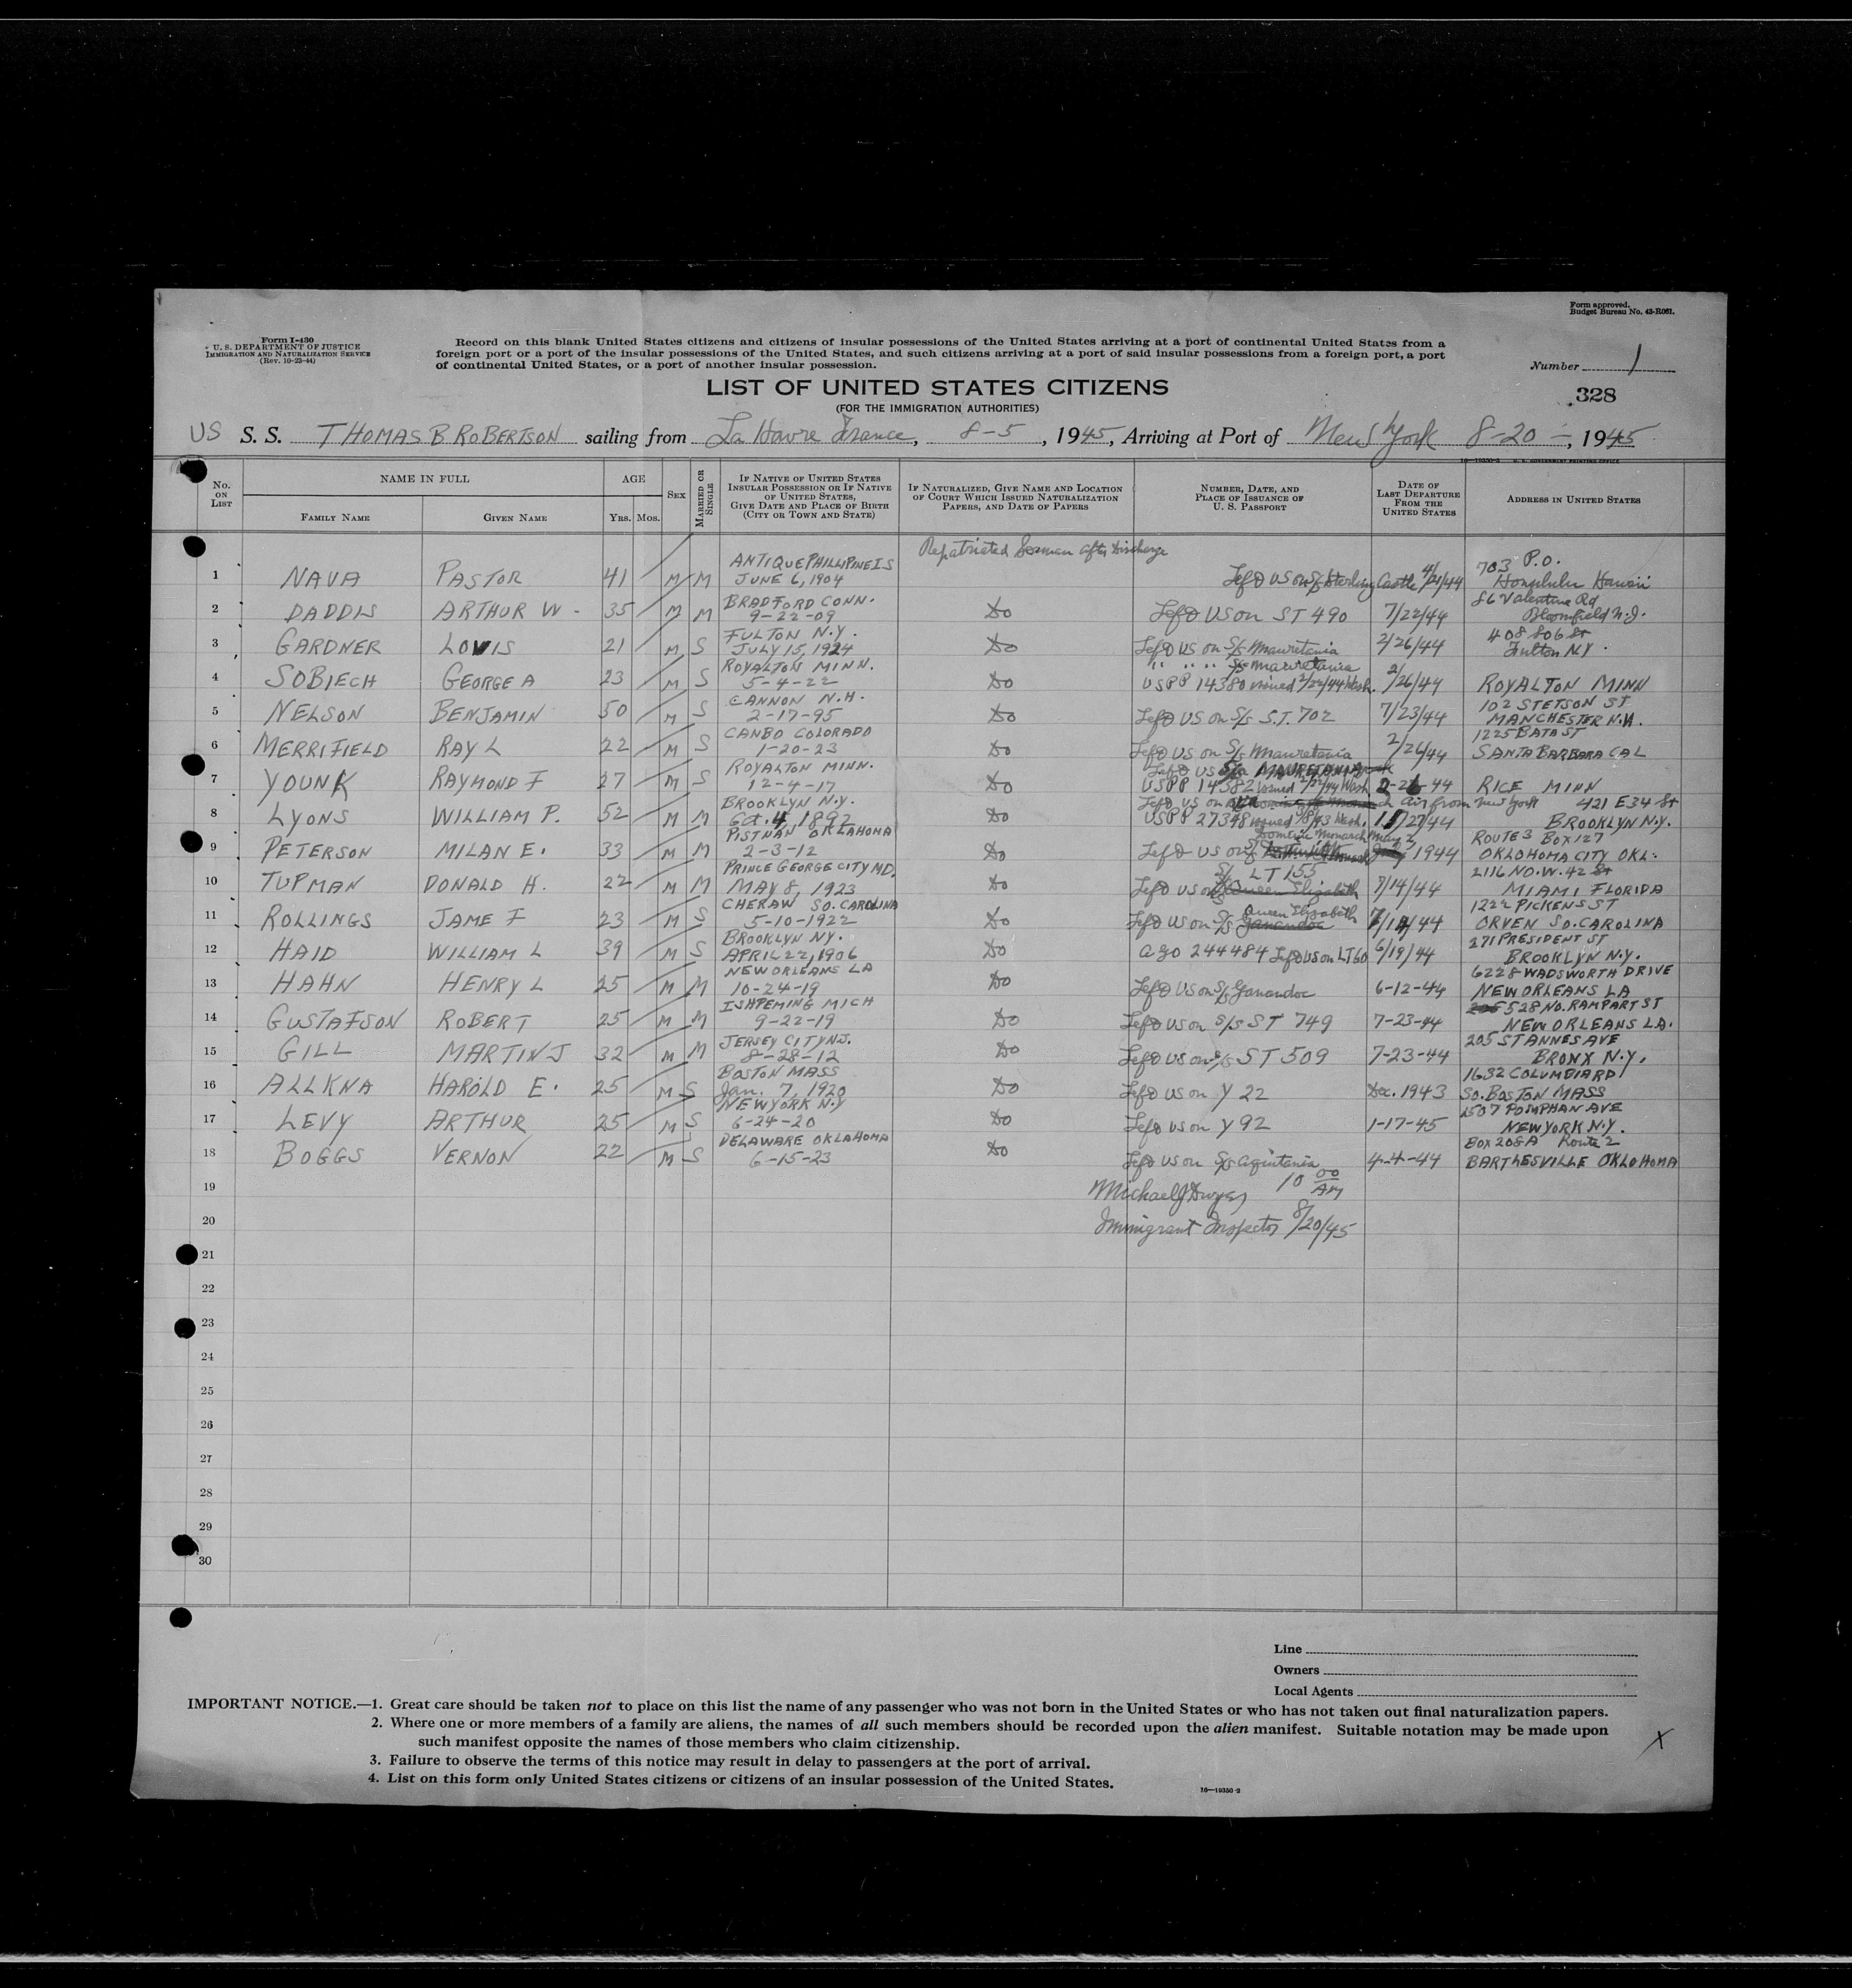 Form approved.
Budget Bureau No. 43-R061.
Form I-430
U. S. DEPARTMENT OF JUSTICE
IMMIGRATION AND NATURALIZATION SERVICE
(Rev. 10-23-44)
Record on this blank United States citizens and citizens of insular possessions of the United States arriving at a port of continental United States from a
foreign port or a port of the insular possessions of the United States, and such citizens arriving at a port of said insular possessions from a foreign port, a port
of continental United States, or a port of another insular possession.
Number 1
LIST OF UNITED STATES CITIZENS
328
(FOR THE IMMIGRATION AUTHORITIES)
US S. S. THOMAS B ROBERTSON sailing from La Havre France, 8-5, 1945, Arriving at Port of New York 8-20-, 1945
No. ON LIST
NAME IN FULL
FAMILY NAME
GIVEN NAME
AGE
YRS. MOS.
SEX
MARRIED OR SINGLE
IF NATIVE OF UNITED STATES
INSULAR POSSESSION OR IF NATIVE
OF UNITED STATES,
GIVE DATE AND PLACE OF BIRTH
(CITY OR TOWN AND STATE)
IF NATURALIZED, GIVE NAME AND LOCATION
OF COURT WHICH ISSUED NATURALIZATION
PAPERS, AND DATE OF PAPERS
NUMBER, DATE, AND
PLACE OF ISSUANCE OF
U. S. PASSPORT
DATE OF
LAST DEPARTURE
FROM THE
UNITED STATES
ADDRESS IN UNITED STATES
Repatriated Seaman after Discharge
ANTIQUE PHILLIPINE IS 703 P.O.
1 NAVA PASTOR 41 M M JUNE 6, 1904 Left US on S/S Sterling Castle 4/21/44 Honolulu Hawaii
BRADFORD CONN. 86 Valentine Rd
2 DADDIS ARTHUR W- 35 M M 9-22-09 Do Left US on ST 490 7/22/44 Bloomfield N.J.
FULTON N.Y. 408 St
3 GARDNER LOUIS 21 M S JULY 15, 1924 Do Left US on S/S Mauretania 2/26/44 Fulton N.Y.
ROYALTON MINN. " " " " S/S Mauretania
4 SOBIECH GEORGE A 23 M S 5-4-22 Do USPP 14380 issued 2/22/44 Wash. 2/26/44 ROYALTON MINN
CANNON N.H. 102 STETSON ST
5 NELSON BENJAMIN 50 M S 2-17-95 Do Left US on S/S S.T. 702 7/23/44 MANCHESTER N.H.
CANBO COLORADO 1225 BATA ST
6 MERRIFIELD RAY L 22 M S 1-20-23 Do Left US on S/S Mauretania 2/26/44 SANTA BARBARA CAL
ROYALTON MINN. Left US S/S MAURETANIA
7 YOUNK RAYMOND F 27 M S 12-4-17 Do USPP 14382 issued 2/22/44 Wash 2-26-44 RICE MINN
BROOKLYN N.Y. Left US on Air from New York 421 E 34 St
8 LYONS WILLIAM P. 52 M M Oct. 4, 1892 Do USPP 27348 issued Wash. 27/44 BROOKLYN N.Y.
PISTNAN OKLAHOMA Monarch May ROUTE 3 BOX 127
9 PETERSON MILAN E. 33 M M 2-3-12 Do Left US on 1944 OKLOHOMA CITY OKL.
PRINCE GEORGE CITY MD. S/S LT 153 2116 NO. W. 42 St
10 TUPMAN DONALD H. 22 M M MAY 8, 1923 Do Left US on Queen Elizabeth 7/14/44 MIAMI FLORIDA
CHERAW SO. CAROLINA Queen Elizabeth 1222 PICKENS ST
11 ROLLINGS JAME F 23 M S 5-10-1922 Do Left US on S/S Ganandoc 44 ORVEN SO. CAROLINA
BROOKLYN NY. 271 PRESIDENT ST
12 HAID WILLIAM L 39 M S APRIL 22, 1906 Do AGO 244484 Left US on LT 60 6/19/44 BROOKLYN N.Y.
NEW ORLEANS LA 6228 WADSWORTH DRIVE
13 HAHN HENRY L 25 M M 10-24-19 Do Left US on S/S Ganandoc 6-12-44 NEW ORLEANS LA
ISHPEMING MICH 528 NO. RAMPART ST
14 GUSTAFSON ROBERT 25 M M 9-22-19 Do Left US on S/S ST 749 7-23-44 NEW ORLEANS LA.
JERSEY CITY NJ. 205 ST ANNES AVE
15 GILL MARTIN J 32 M M 8-28-12 Do Left US on S/S ST 509 7-23-44 BRONX N.Y.
BOSTON MASS 1632 COLUMBIA RD
16 ALLKNA HAROLD E. 25 M S Jan. 7, 1920 Do Left US on Y 22 Dec. 1943 SO. BOSTON MASS
NEW YORK N.Y 1507 POMPHAN AVE
17 LEVY ARTHUR 25 M S 6-24-20 Do Left US on Y 92 1-17-45 NEW YORK N.Y.
DELAWARE OKLAHOMA BOX 208A Route 2
18 BOGGS VERNON 22 M S 6-15-23 Do Left US on S/S Aquitania 4-4-44 BARTHESVILLE OKLOHOMA
19 Michael J Dwyer 10 00 AM
20 Immigrant Inspector 8/20/45
21
22
23
24
25
26
27
28
29
30
Line
Owners
Local Agents
IMPORTANT NOTICE.—1. Great care should be taken not to place on this list the name of any passenger who was not born in the United States or who has not taken out final naturalization papers.
2. Where one or more members of a family are aliens, the names of all such members should be recorded upon the alien manifest. Suitable notation may be made upon
such manifest opposite the names of those members who claim citizenship.
3. Failure to observe the terms of this notice may result in delay to passengers at the port of arrival.
4. List on this form only United States citizens or citizens of an insular possession of the United States.
X
16—19350-2